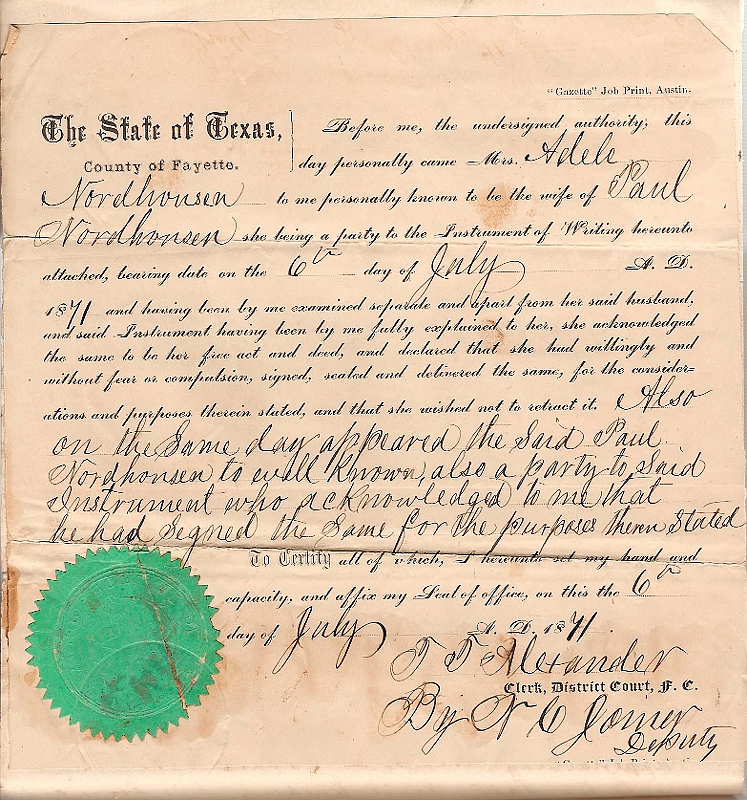 "Gazette" Job Print, Austin.
The State of Texas,
County of Fayette.
Before me, the undersigned authority, this
day personally came Mrs. Adele
Nordhousen to me personally known to be the wife of Paul
Nordhousen she being a party to the Instrument of Writing hereunto
attached, bearing date on the 6th day of July A. D.
1871 and having been by me examined separate and apart from her said husband,
and said Instrument having been by me fully explained to her, she acknowledged
the same to be her free act and deed, and declared that she had willingly and
without fear or compulsion, signed, sealed and delivered the same, for the consider-
ations and purposes therein stated, and that she wished not to retract it. Also
on the Same day appeared the Said Paul
Nordhousen to well known, also a party to Said
Instrument who acknowledged to me that
he had Signed the Same for the purposes theren Stated
To Certify all of which, I hereunto set my hand and
capacity, and affix my Seal of office, on this the 6th
day of July A. D. 1871.
T T Alexander
Clerk, District Court, F. C.
By N C Joiner
Deputy